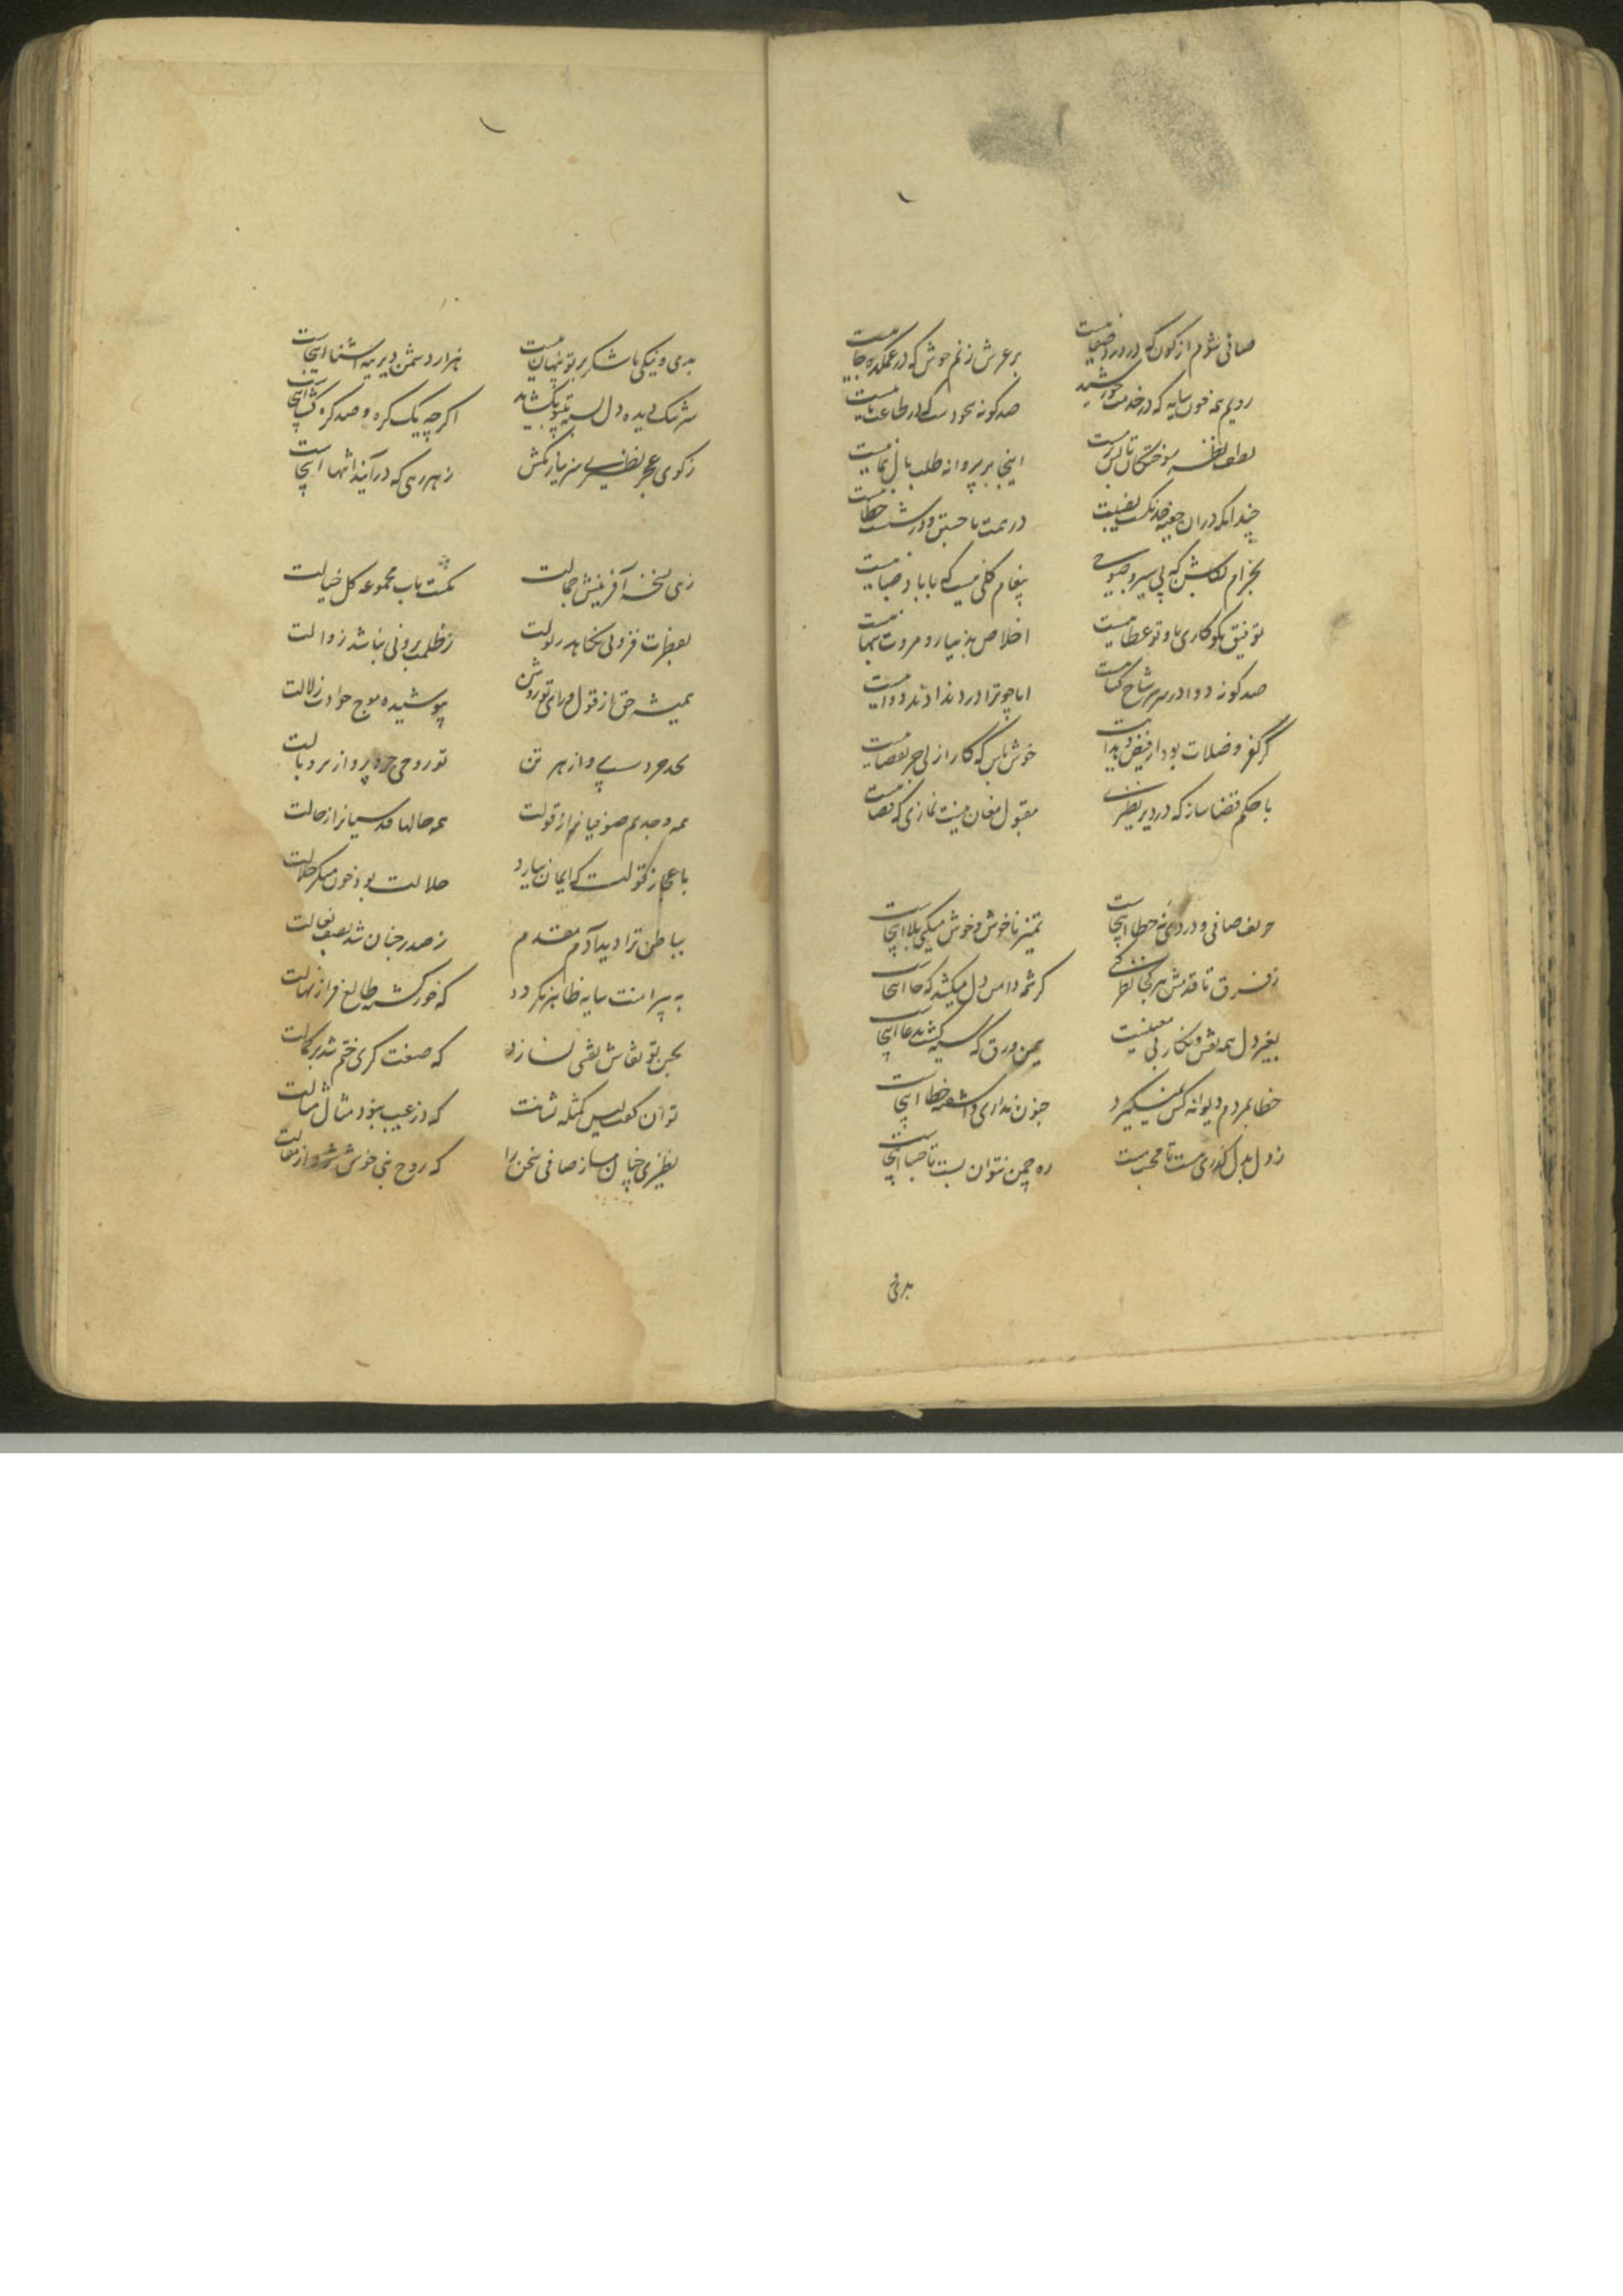 صافی شوم از کون که در درد صفا نیست بر عرش زنم جوش که در غمکده جا نیست
رویم همه چون سایه که در خدمت خورشید صد گونه سجودست که در طاعت ما نیست
لطف نظر سوختگان تا بسر تست اینجا بر پروانه طلب بال هما نیست
چندانکه دران جعبه خدنگست نصیبت در همت ما جستن و در شست خطا نیست
بخرام بگلشن که پی سیر و صبوحی پیغام گلی نیست که با باد صبا نیست
توفیق نکوکاری ما و تو عطا نیست اخلاص بدست آر و مروت بهما نیست
صد گونه دوا در سر هر شاخ گیاست اما چو ترا درد ندادند دوا نیست
گر کفر و ضلالت بود از فیض خوش باش که کار ازلی جز بقضا نیست
با حکم قضا ساز که در دیر نظیری مقبول مغان نیست نمازی که قضا نیست
حریف صافی و دردی نه خطا اینجاست تمیز ناخوش و خوش میکنی بلا اینجاست
ز فرق تا قدمش هر کجا نظر کرشمه دامن دل میکشد که جا اینجاست
بغیر دل همه نقش و نگار بی معنیست همین ورق که سیه گشته مدعا اینجاست
خطا بمردم دیوانه کس نمیگیرد جنون نداری و آشفته خطا اینجاست
ز دل بدل گذری هست تا محبت هست ره چمن نتوان بست تا صبا اینجاست
بدی و
بدی و نیکی ما شکر بر تو پنهان نیست هزار دشمن دیرینه آشنا اینجاست
سرشک دیده دل بسته نیز بگشاید اگرچه یک گره و صد گره گشا اینجاست
ز کوی عجز نظیری سر نیاز مکش ز هر رهی که درآیند انتها اینجاست
زهی نسخه آفرینش جمالت باب مجموعه کل خیالت
بعظمات فزونی نکاهد ز ظلمت برونی نباشد زوالت
همیشه حق از قول و رای تو روشن نپوشیده موج حوادث زلالت
تن تو روحی پرواز بر و بالت
همه وجدیم صوفیانیم از قولت همه حالها قدسیانرا ز حالت
باعجاز قولت که ایمان نیارد حلالت بود خون منکر حلالت
بباطن ترا دید آدم مقدم ز صدر جنان شد بصف نعالت
به پیرامنت سایه ظاهر نگردد که خور گشته طالع فراز نهالت
بحسن تو نقاش نقشی نسازد که صنعت گری ختم شد بر کمالت
توان گفت لیس کمثله بشانت که در عیب نبود مثال مثالت
نظیری چنان ساز صافی سخن را که روح نبی خوش شود از مقالت